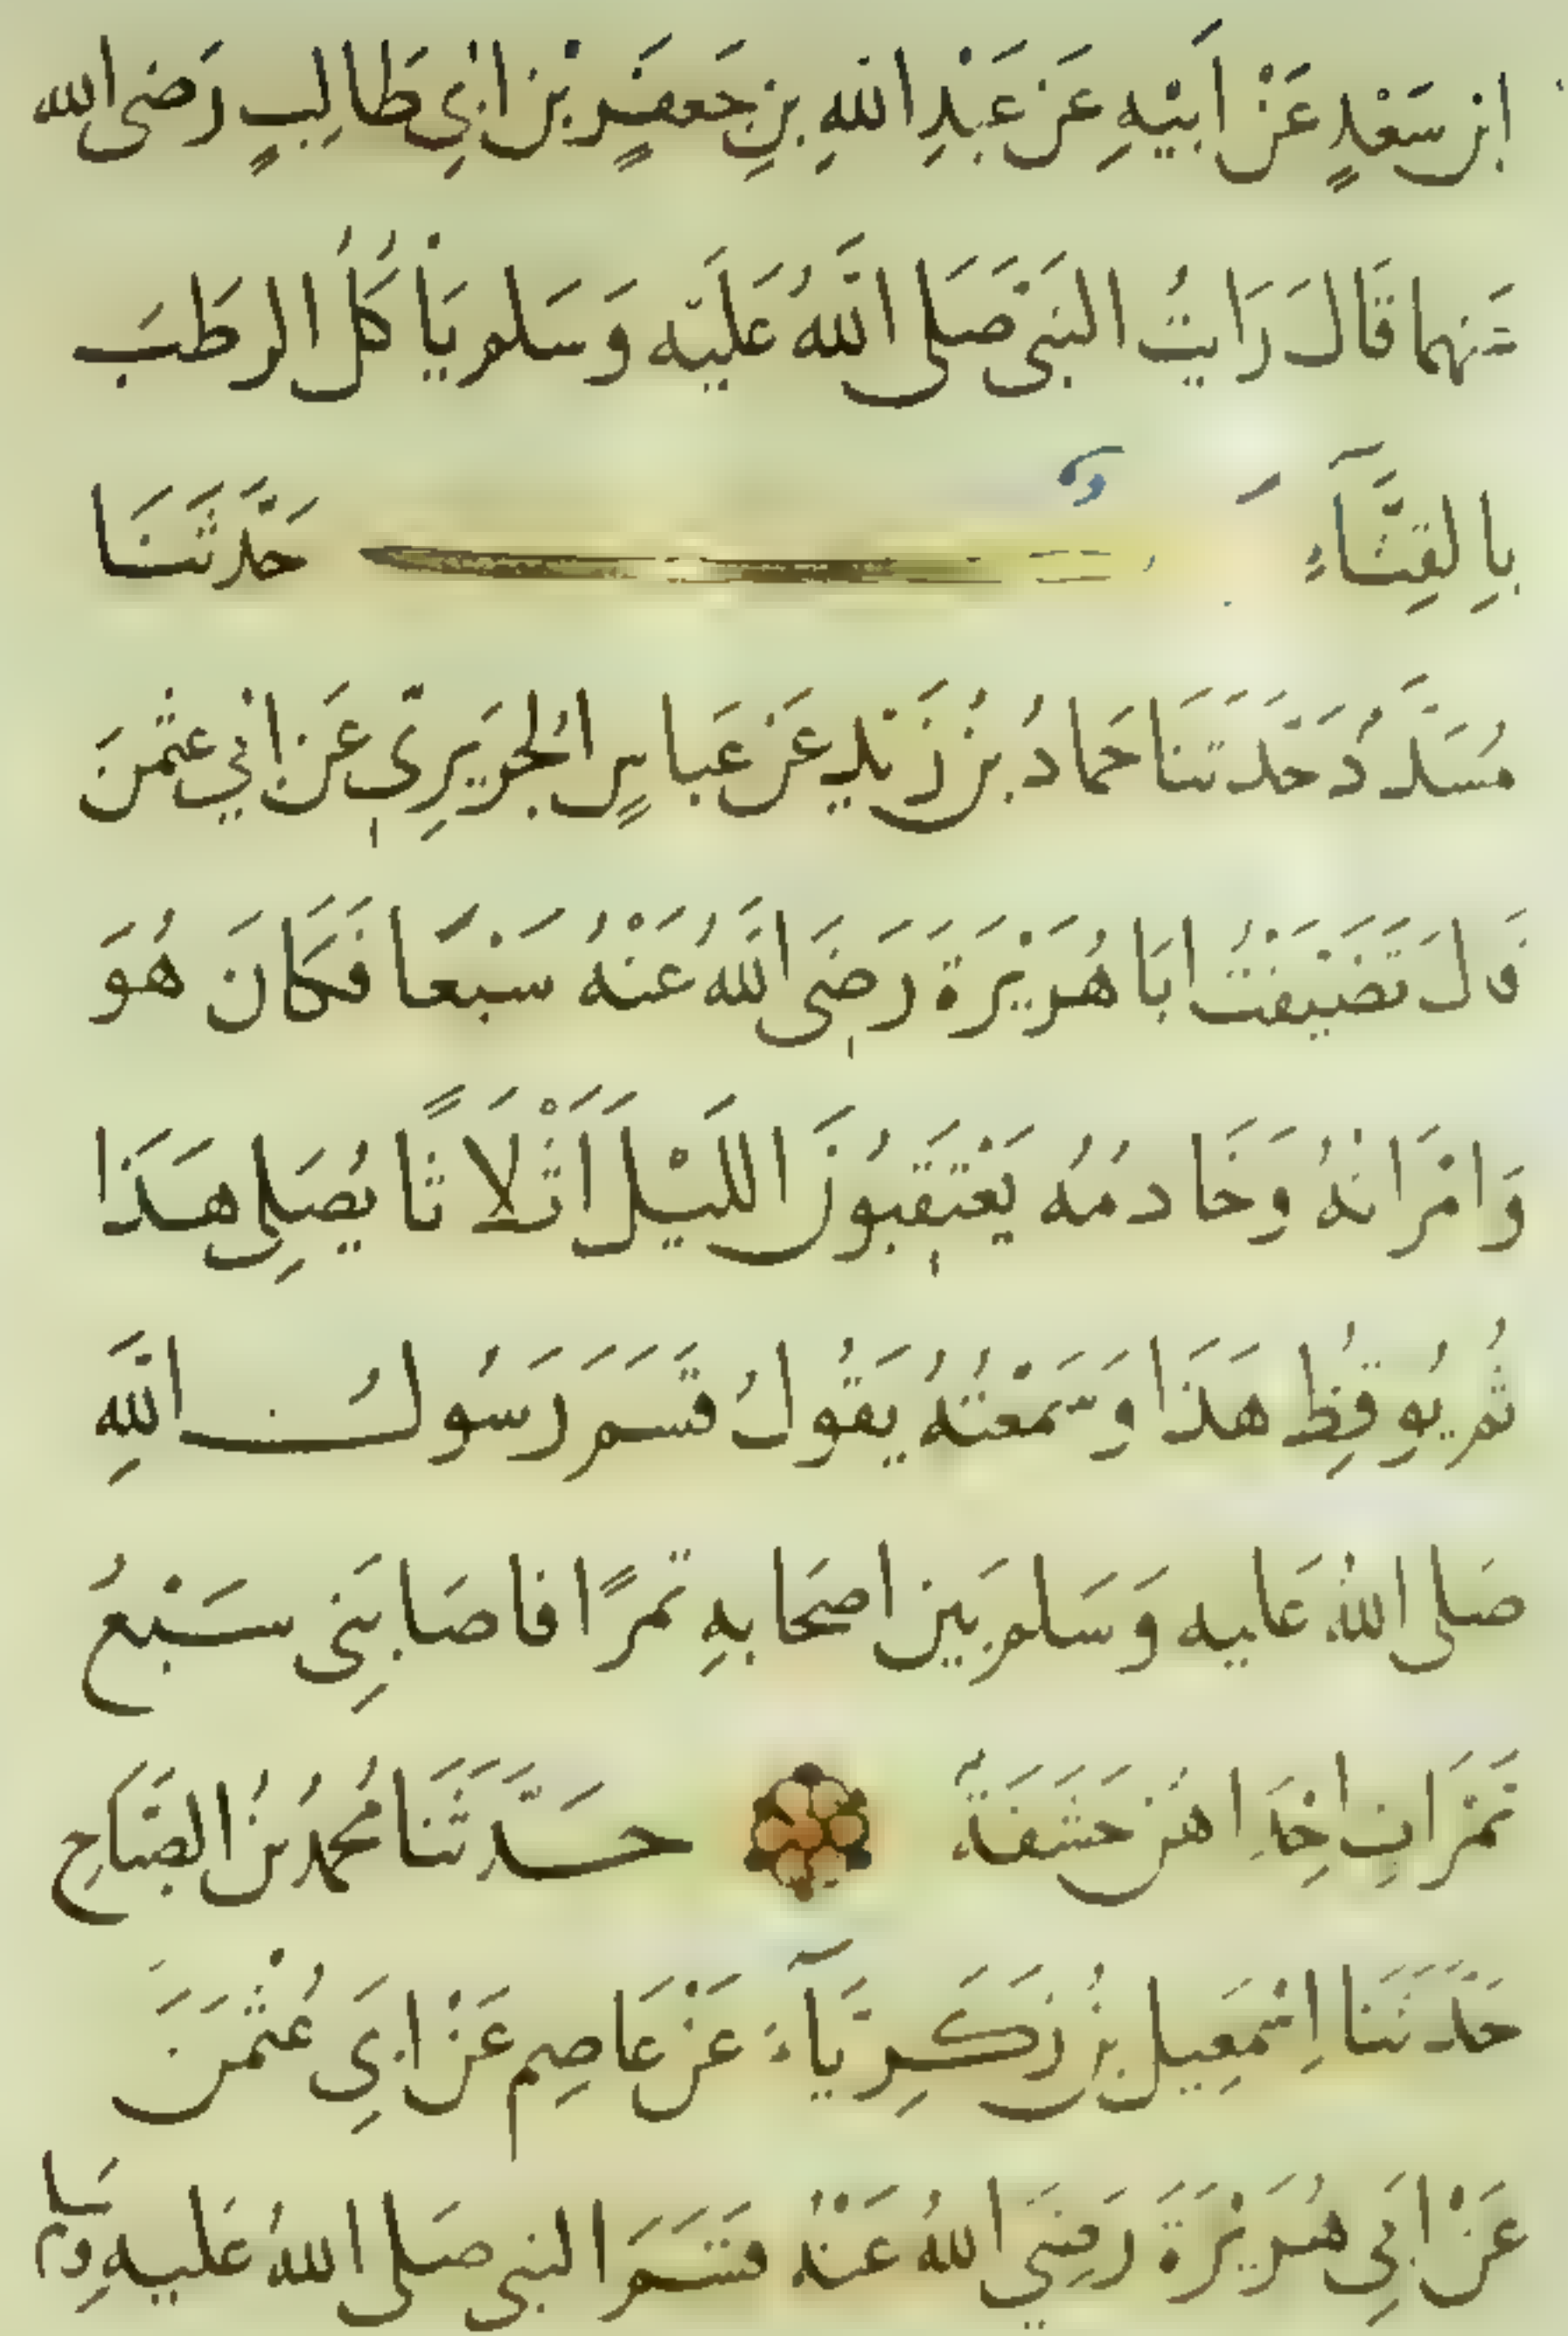 ابن سَعْدٍ عَنْ اَبيْهِ عَن عَبْدِ اللهِ بنِ جَعفَرٍ بْن ابْي طَالِبٍ رَضى الله
عَنهما قَالَ رَايتُ النبَى صَلى اللهُ عَلَيْه وَسَلم يَأْكُلُ الرطَبَ
بِالقِثَّآءِ حَدَّثَنَا
مُسَدَّدُ حَدَّثَنَا حَمادُ بنُ زَيْدٍ عَن عَباسٍ الجُرَيرِىّ عَن ابْي عثْمنَ
قَالَ تَضَيَّفتُ ابَا هُرَيْرَةَ رَضِىَ اللهُ عَنْهُ سَبْعًا فَكَانَ هُوَ
وَامْرَاتهُ وَخَادمُهُ يَعْتَقِبُونَ اللَيْلَ اَثْلَاثًا يُصَلِى هَذَا
ثُم يُوقِظُ هَذَا وَسَمعْتُهُ يَقُولُ قَسَمَ رَسُولُ اللهِ
صَلى اللهُ عَليه وَسَلم بَين اصحَابهِ تمرًا فاصَابَنِى سَبْعُ
تَمَرَاتٍ اِحْدَاهُن حَشَفَةٌ حَدَّثَنَا مُحمدُ بْنُ الصَّبَاحِ
حَدَّثَنَا اِسْمَعِيل بنُ زَكَرِيَّآءَ عَنْ عَاصِم عَنْ ابِى عُثْمَنَ
عَنْ ابِى هُرَيْرَةَ رَضِيَ اللهُ عَنْهُ قَسَمَ النبى صَلى اللهُ عَليهِ وسَلم